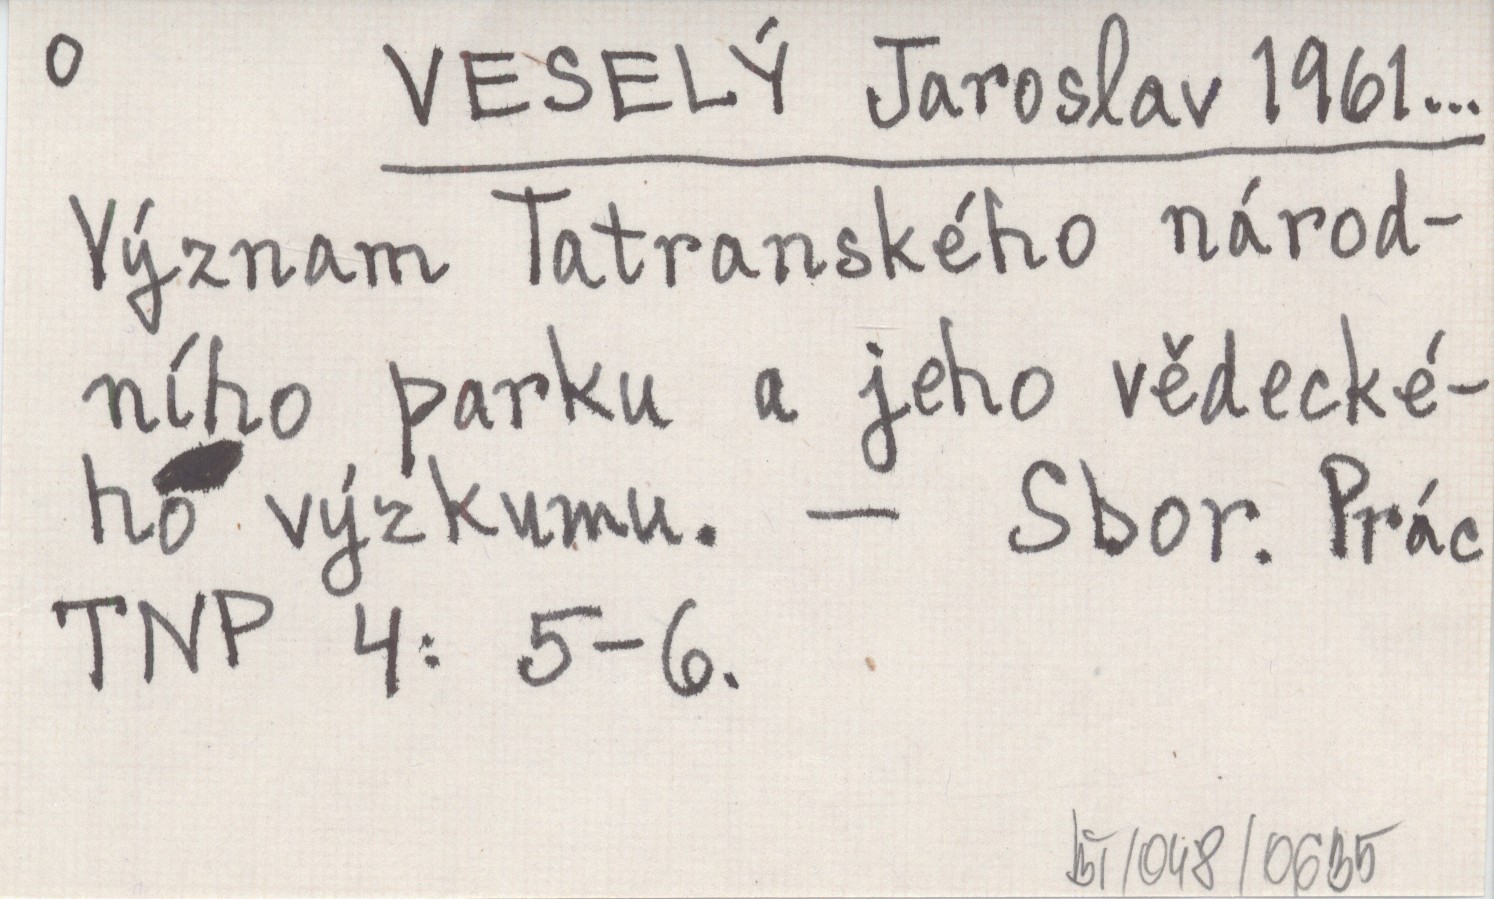 o VESELÝ Jaroslav 1961...
Význam Tatranského národ-
ního parku a jeho vědecké-
ho výzkumu. — Sbor. Prác
TNP 4: 5-6.
/048/0635